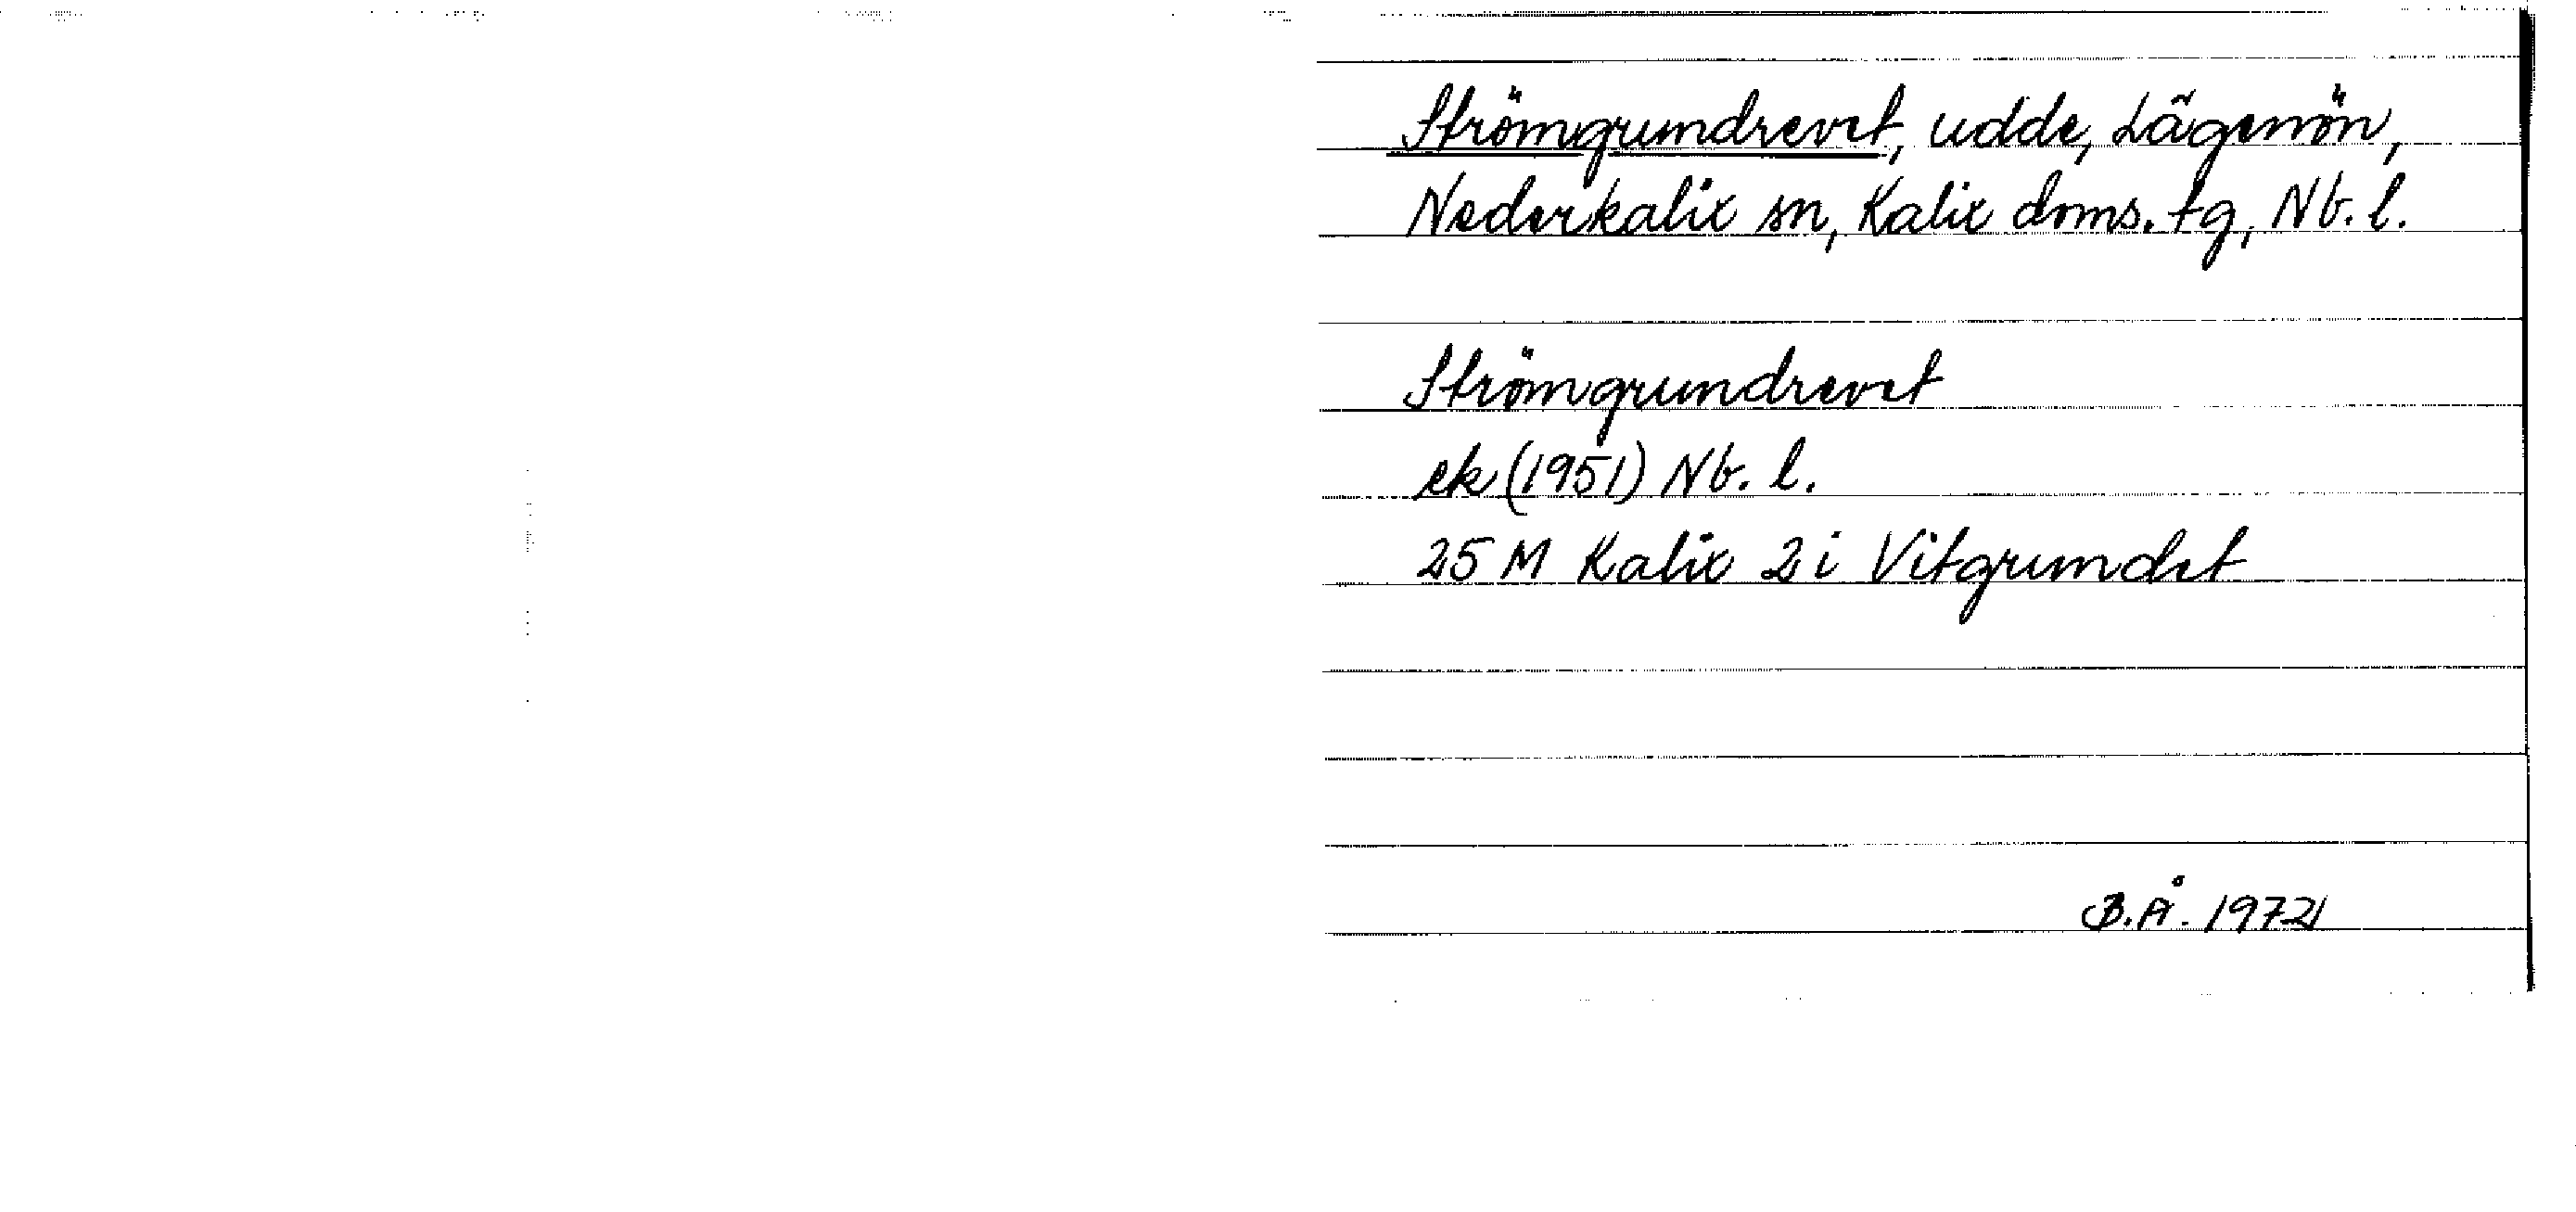 Strömgrundrevet, udde, Lägenön,
Nederkalix sn, Kalix doms. tg, Nb. l.
Strömgrundrevet
ek (1951) Nb. l.
25 M Kalix 2 i Vitgrundet
B.Å. 1972